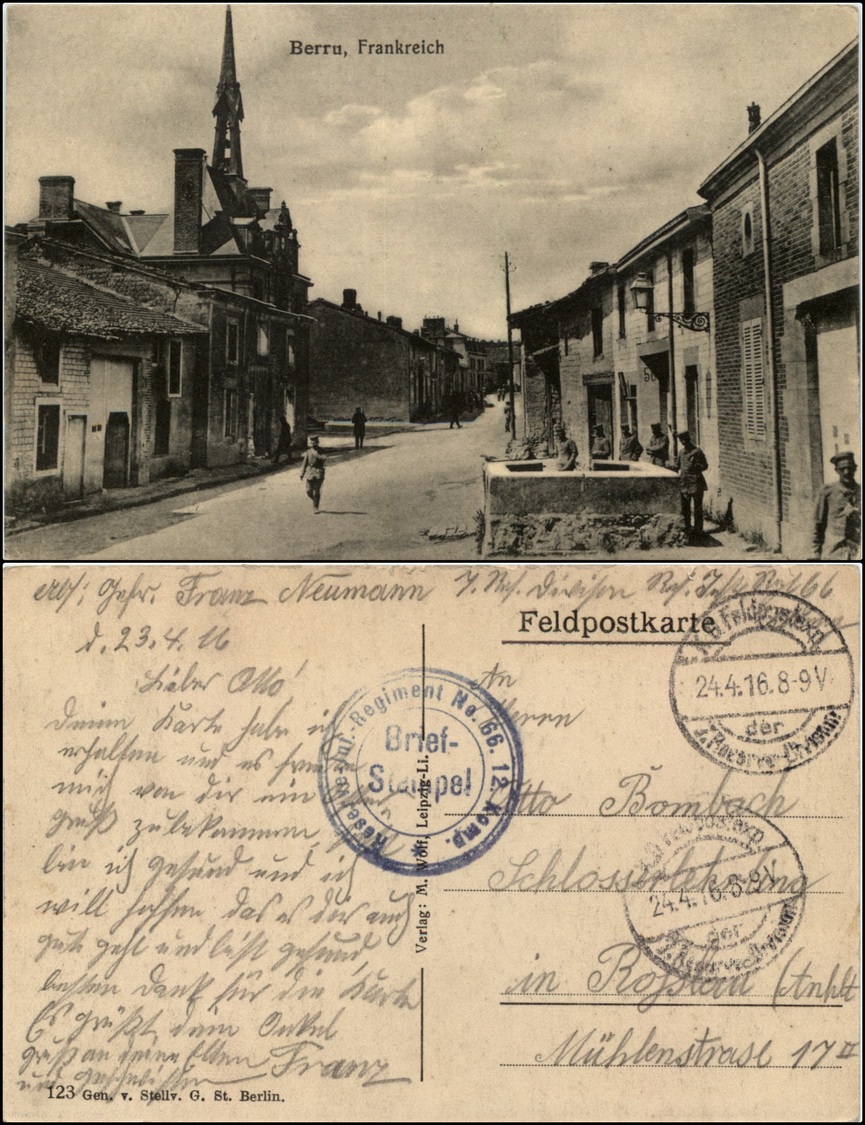 Berru, Frankreich
Abs: Gefr. Franz Neumann 7. Res. Division Res. Inft. Regt 66
d. 23.4.16
Feldpostkarte
Lieber Otto!
Deine Karte habe ich
erhalten und es freute
mich von dir ein
Gruß zu bekommen,
bin ich gesund und ich
will hoffen das es dir auch
gute geht und bist gesund,
besten Dank für die Karte
Es grüßt dein Onkel
Franz
Gruß an deine Elten
und Geschwister
123 Gen. v. Stellv. G. St. Berlin.
Reserve-Inf.-Regiment No. 66. 12. Komp.
Brief-
Stempel
Verlag: M. Wolf, Leipzig-Li.
An
Herrn
Otto Bombach
Schlosserlehrling
in Roßlau /Anhlt
Mühlenstrase 17 II
K.D. Feldpostexp.
24.4.16. 8-9V
der
7. Reserve-Division
K.D. Feldpostexp.
24.4.16. 8-9V
der
7. Reserve-Division